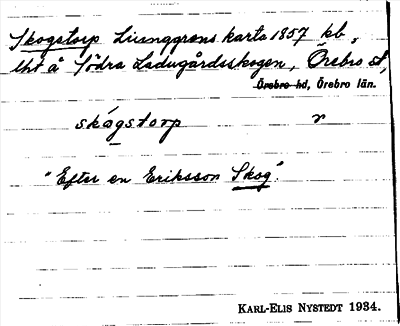 Skogstorp Ljunggrens karta 1857 kb,
lht å Södra Ladugårdsskogen, Örebro st,
Örebro hd, Örebro län.
skógstorp r
"Efter en Eriksson Skog".
KARL-ELIS NYSTEDT 1934.